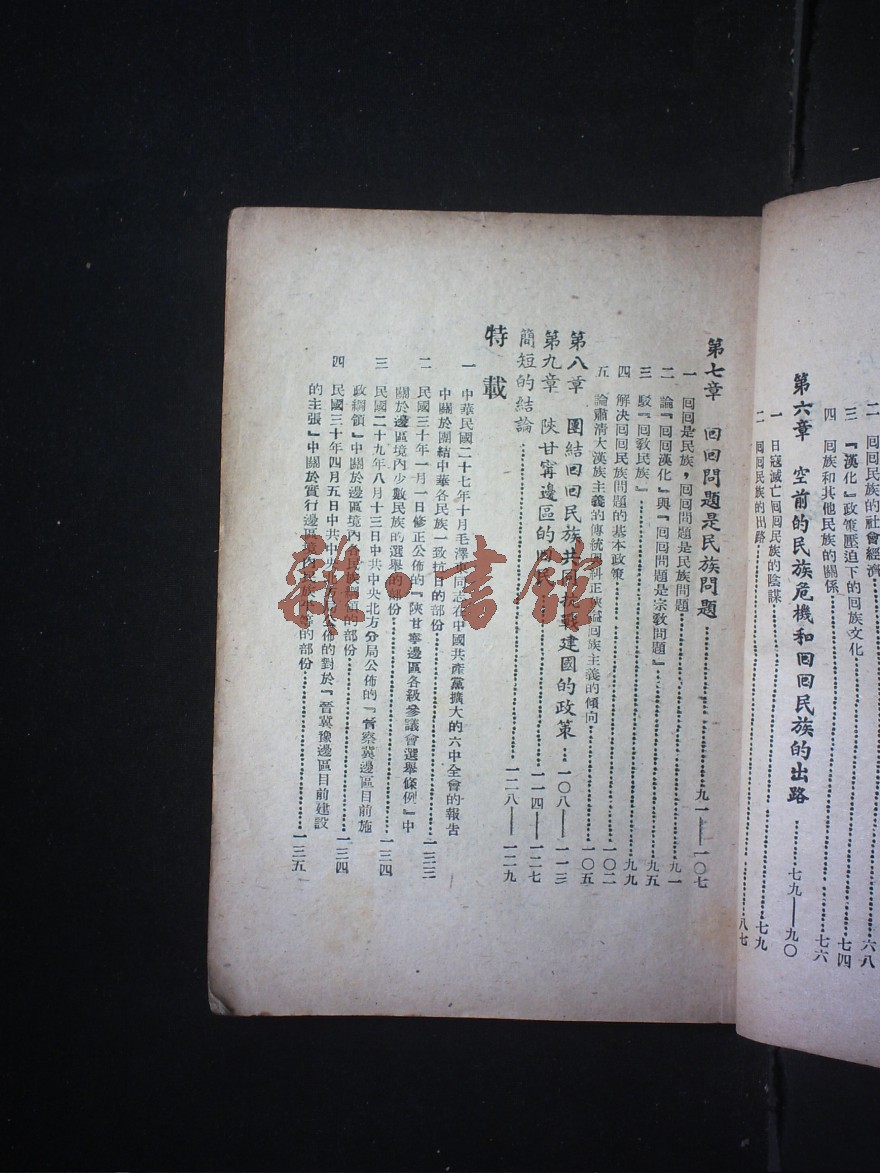 二 回回民族的社會經濟………六八
三 『漢化』政策壓迫下的回族文化………七四
四 回族和其他民族的關係………七六
第六章 空前的民族危機和回回民族的出路………七九——九〇
一 日寇滅亡回回民族的陰謀………七九
二 回回民族的出路………八七
第七章 回回問題是民族問題………九一——一〇七
一 回回是民族，回回問題是民族問題………九一
二 論『回回漢化』與『回回問題是宗教問題』………九五
三 駁『回教民族』………九九
四 解決回回民族問題的基本政策………一〇二
五 論肅清大漢族主義的傳統與糾正狹隘回族主義的傾向………一〇五
第八章 團結回回民族共同抗戰建國的政策…一〇八——一一三
第九章 陝甘寧邊區的回民………一一四——一二七
簡短的結論………一二八——一二九
特載
一 中華民國二十七年十月毛澤東同志在中國共產黨擴大的六中全會的報告
中關於團結中華各民族一致抗日的部份………一三三
二 民國三十年一月一日修正公佈的『陝甘寧邊區各級參議會選舉條例』中
關於邊區境內少數民族的選舉的部份………一三四
三 民國二十九年八月十三日中共中央北方分局公佈的『晉察冀邊區目前施
政綱領』中關於邊區境內各民族綱領的部份………一三四
四 民國三十年四月五日中共中央北方局公佈的對於『晉冀豫邊區目前建設
的主張』中關於實行邊區境內民族平等的部份………一三五
雜·書館